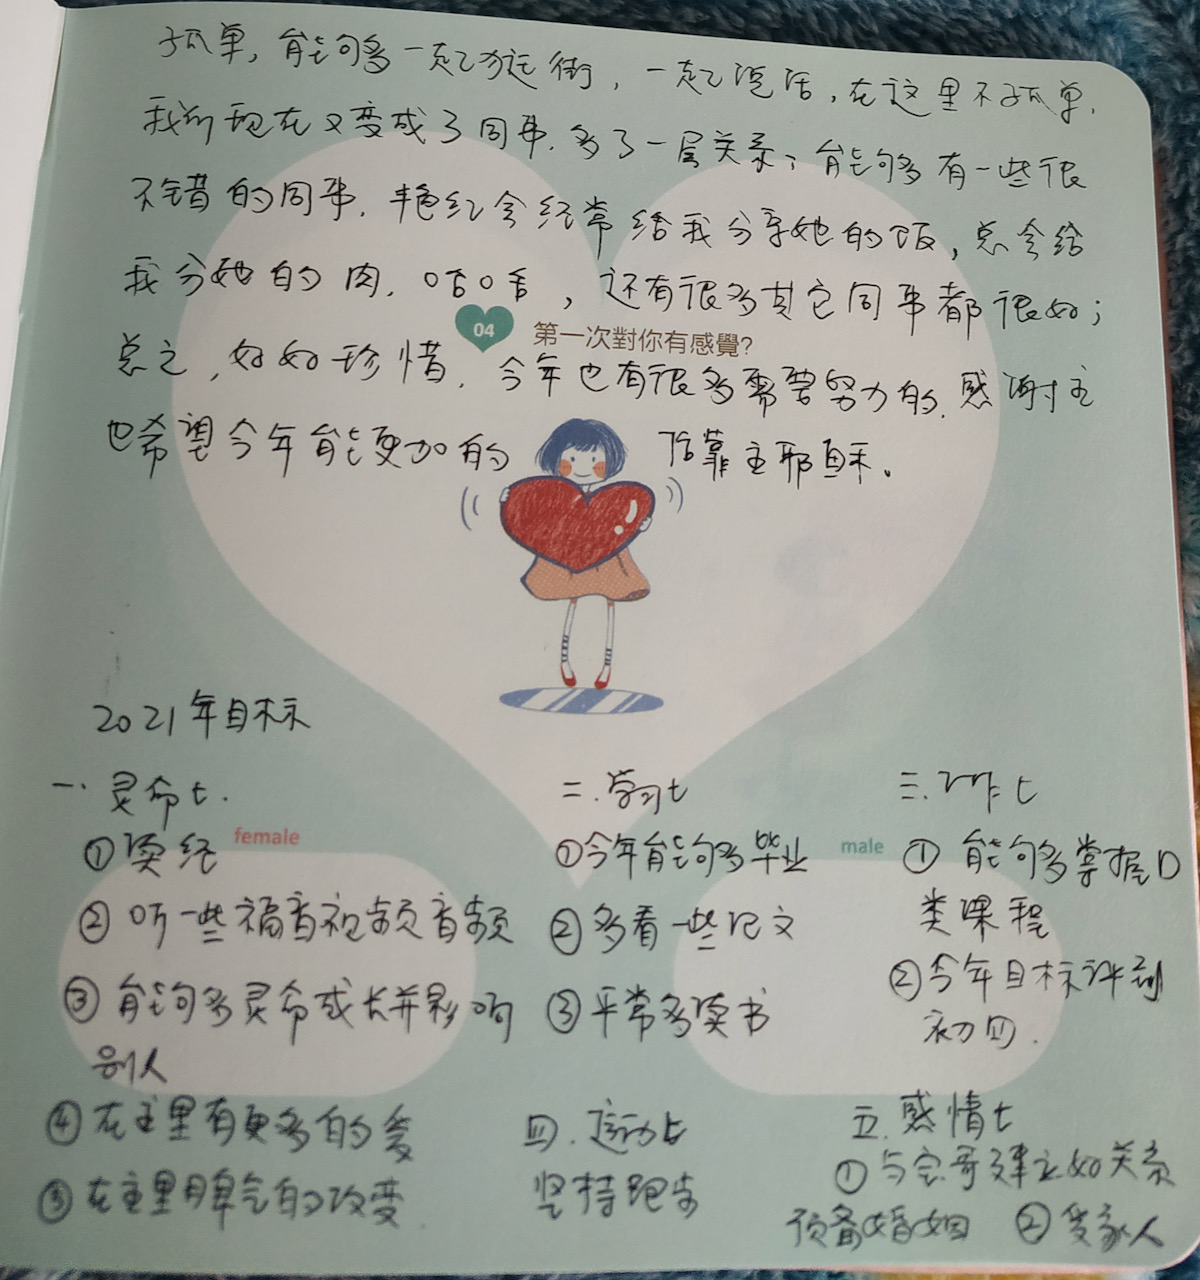 孤单,能够多一起逛街,一起说话,在这里不孤单.
我们现在又变成了同事.多了一层关系,能够多有一些很
不错的同事.艳红会经常给我分享她的饭,总会给
我分她的肉.哈哈,还有很多其它同事都很好;
04 第一次對你有感覺?
总之,好好珍惜.今年也有很多需要努力的.感谢主
也希望今年能更加的 依靠主耶稣。
2021年目标
一.灵命上.
①读经
female
②听一些福音视频音频
③能够多灵命成长并影响
别人
④在主里有更多的爱
⑤在主里脾气的改变.
二.学习上
①今年能够多毕业
②多看一些论文
③平常多读书
四.运动上
坚持跑步
三.工作上
male
①能够多掌握D
类课程
②今年目标评到
初四.
五.感情上
①与宗哥建立好关系
预备婚姻 ②爱家人